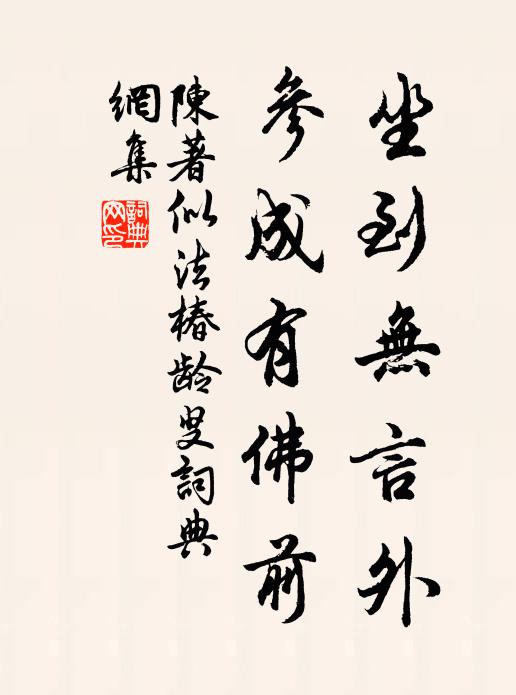 坐到無言外
參成有佛前
陳著似法椿龄叟詞典
網集
詞典
网印